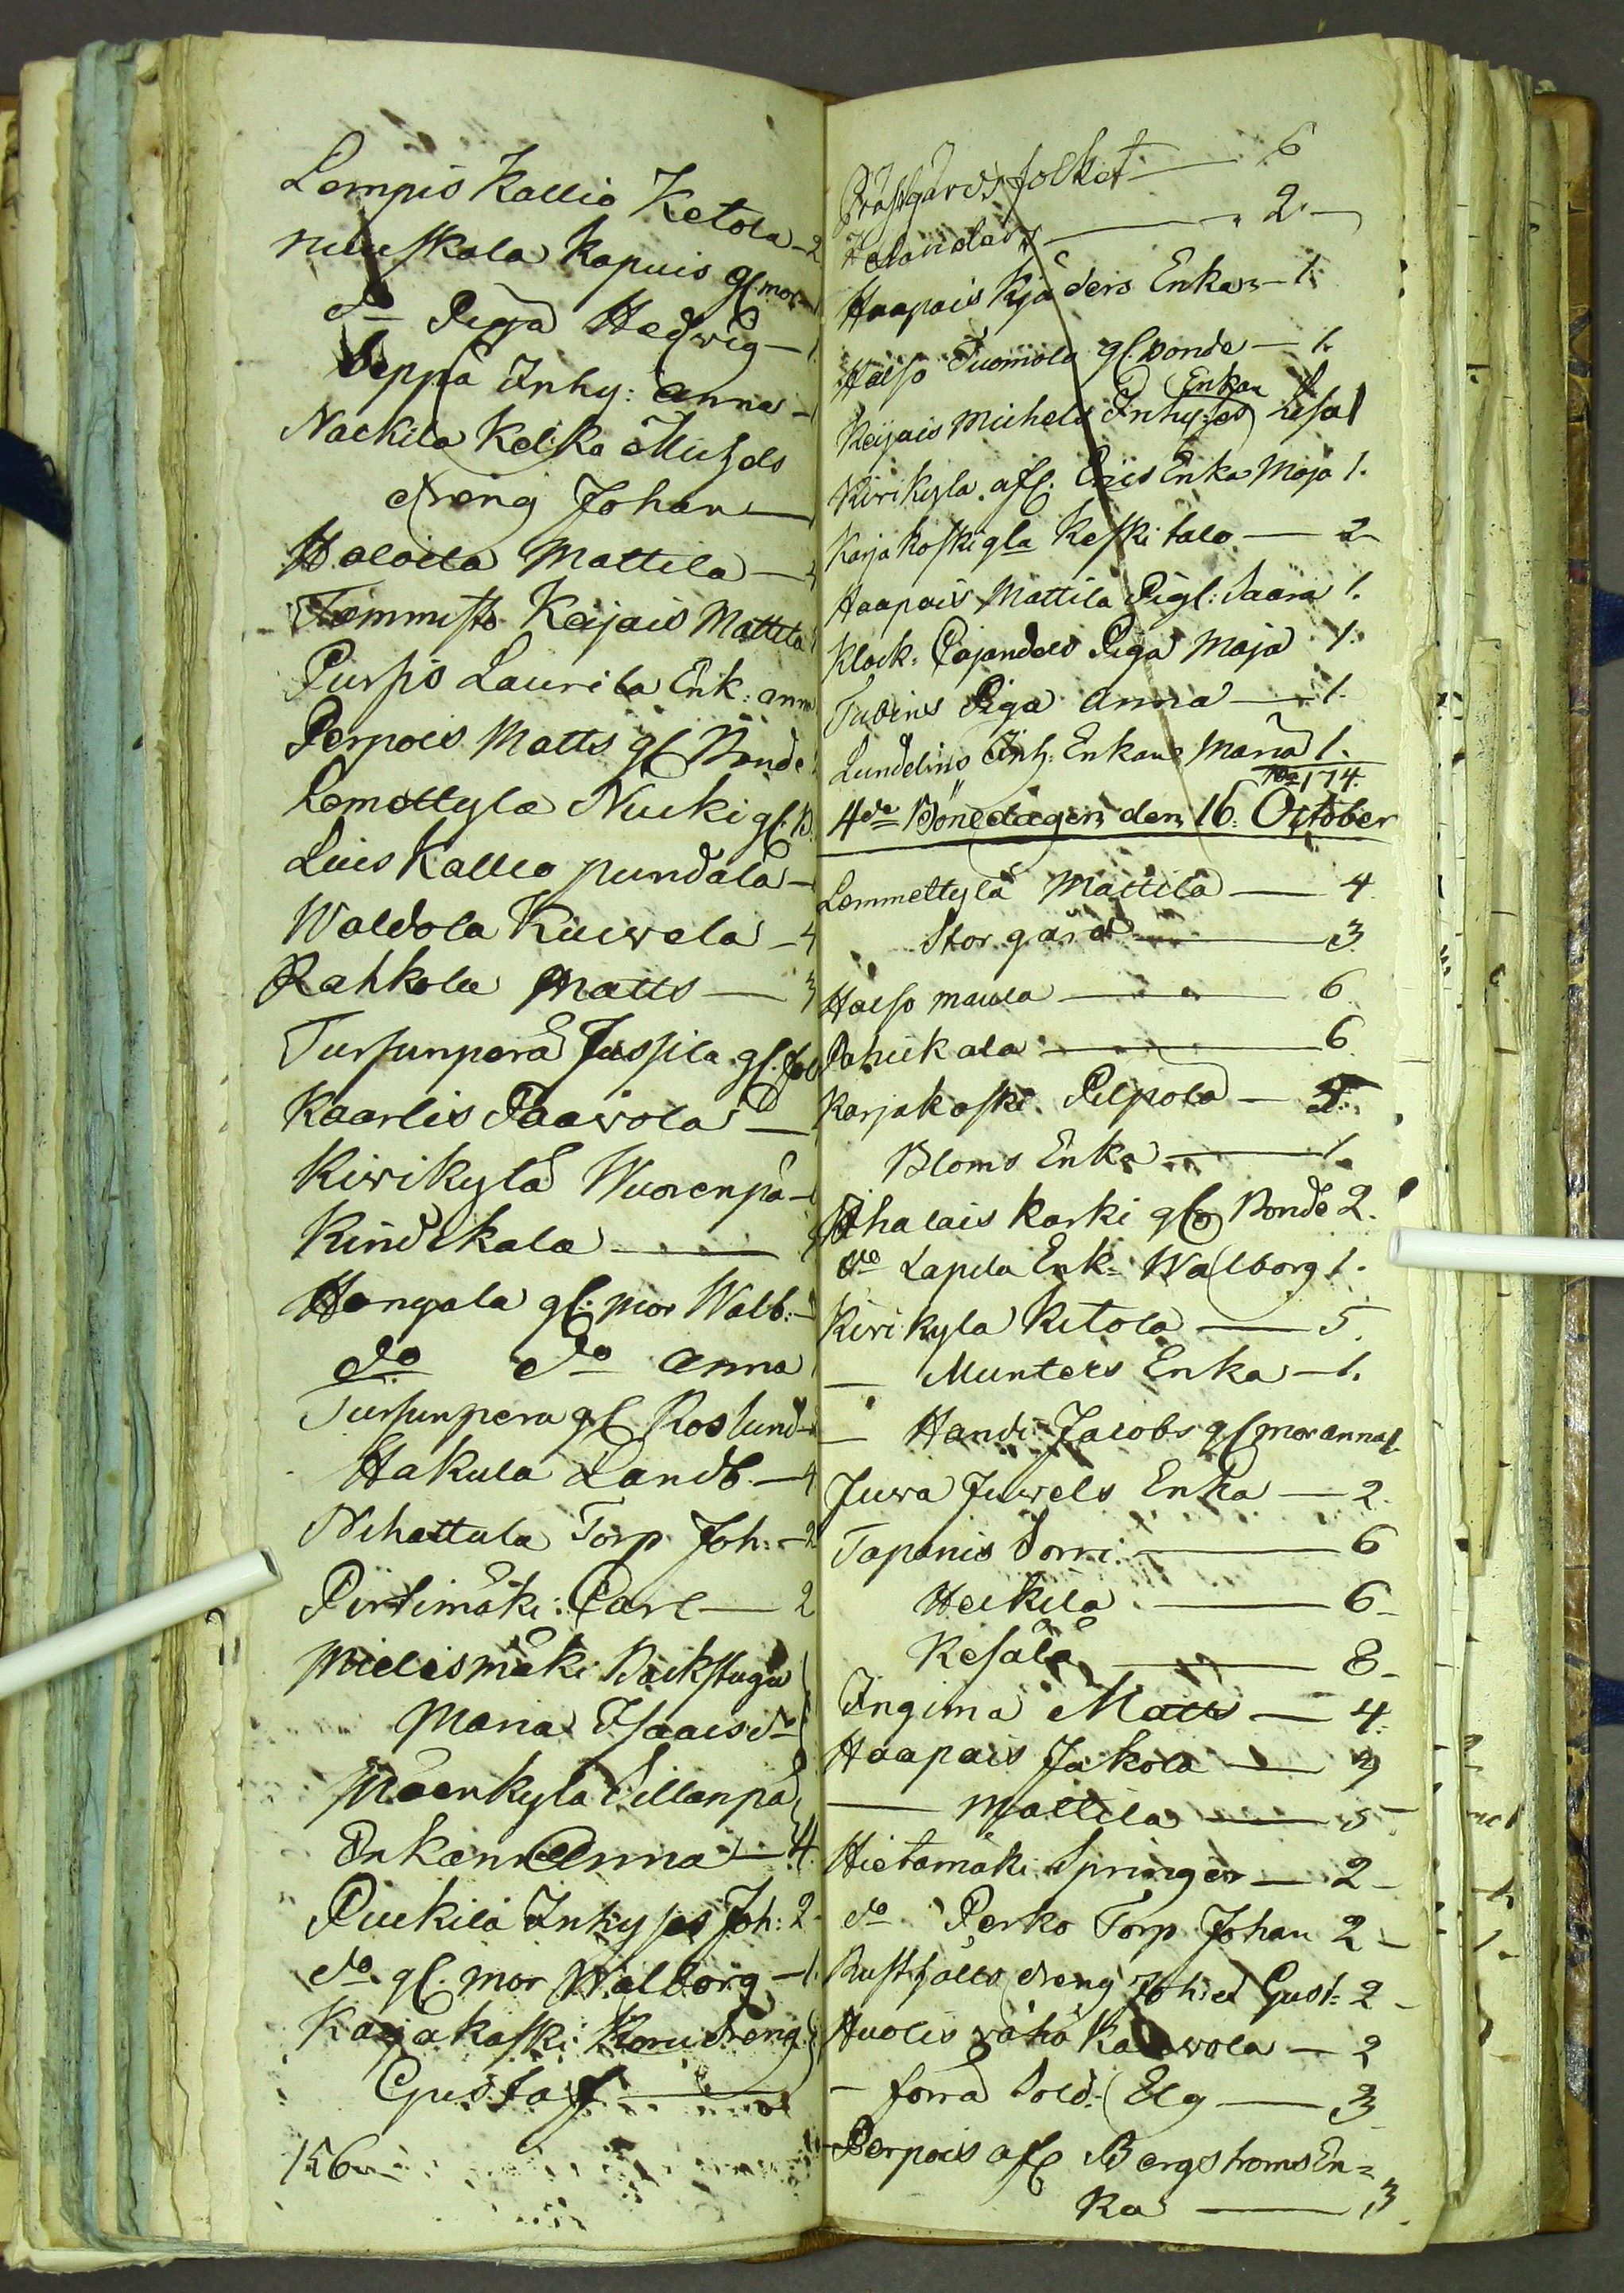 Lempis Kallio Ketola - 2
Nuuskala Kapuis gl. mor - 1
do Piga Hedwig - 1.
Seppä Inhy: Anna - 1
Nackila Kelka Michels
dreng Johan - 1
Haloila Mattila - 4
Tommisto Keijais Mattila
Pursis Laurila Enk: anna
Perpois Matts gl Bonde
Lemettylä Nuki gl. B.
Luis Kallio pundala -
Waldola Kuiwela - 4
Rahkola Matts - 3
Tursunperä Jussila gl. fol
Kaarlis Paavola -
Kirikylä Wuorenpä -
Kindikala -
Hongala gl. mor Walb: - 1
do do anna
Tursunpera gl Roslund -
Hakula Landb. - 4
Nihattula Torp Joh: - 2
Pirtimäki: Carl - 2
Mielismäki Backstugu
Maria Isaacsd
Mäenkylä Sillanpä
Enkan Anna - 4
Puckila Inhyses Joh: 2 -
do gl. mor Walborg - 1.
Karjakoski: Koru dreng
Gustaf -
156 -
Prästgårds folket - 6
Helanders - 2 -
Haapais Kjäders Enka - 1.
Halso Tuomola gl. Bonde - 1.
Enkan
Keijais Michels Inhyses Lisa 1
Kirikyla afl. Eriis Enka Maja 1.
Karjakoski gla Keskitalo - 2 -
Haapais Mattila Pigl: Saara 1.
Klock: Cajanders Piga Maja 1.
Tubins Piga Anna - 1.
Lundelins Inh: Enkan Maria 1.
174.
4de Bönedagen den 16. October
Lemmettylä Mattila - 4
Storgård - 3
Halso maula - 6
Pahikala - 6
Karjakoski Pilpola - 4.
Bloms Enka - 1.
Ihalais Karki gl Bonde 2.
do Lapila Enk: Walborg 1.
Kirikyla Ketola - 5.
- Munters Enka - 1.
- Handi Jacobs gl mor anna 1.
Juva Juvels Enka - 2.
Tapanis Sorri - 6
Heikila - 6 -
Kesälä - 8 -
Ingima Matts - 4.
Haapais Jakola - 9
- Mattila - 5 -
Hietamäki Springer - 2 -
do Perko Torp Johan 2 -
Rusthålls dreng Joh: et Gust: 2 -
Auolis wähä Kaawola - 2
- förra Sold: Elg - 3
- Perpois afl Bergstroms En=
ka - 3.